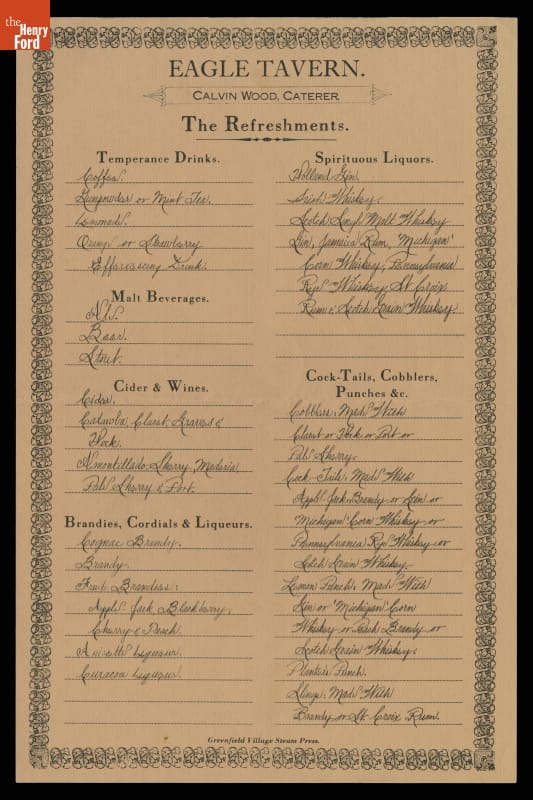 the
Henry
Ford
EAGLE TAVERN.
CALVIN WOOD, CATERER.
The Refreshments.
Temperance Drinks.
Coffee.
Gunpowder or Mint Tea.
Lemonade.
Orange or Strawberry
Effervescing Drink.
Malt Beverages.
Ale.
Beer.
Stout.
Cider & Wines.
Cider.
Catawba, Claret, Graves &
Hock.
Amontillado, Sherry, Madeira,
Pale Sherry & Port.
Brandies, Cordials & Liqueurs.
Cognac Brandy.
Brandy.
Fruit Brandies:
Apple Jack, Blackberry,
Cherry & Peach.
Anisette Liqueur.
Curacoa Liqueur.
Spirituous Liquors.
Holland Gin.
Irish Whiskey.
Scotch Single Malt Whiskey
Gin, Jamaica Rum, Michigan
Corn Whiskey, Pennsylvania
Rye Whiskey, St Croix
Rum & Scotch Grain Whiskey.
Cock-Tails, Cobblers,
Punches &c.
Cobblers: Made With
Claret or Hock or Port or
Pale Sherry.
Cock-Tails: Made With
Apple Jack Brandy or Gin or
Michigan Corn Whiskey or
Pennsylvania Rye Whiskey or
Scotch Grain Whiskey.
Lemon Punch: Made With
Gin or Michigan Corn
Whiskey or Peach Brandy or
Scotch Grain Whiskey.
Planter's Punch.
Slings: Made With
Brandy or St. Croix Rum.
Greenfield Village Steam Press.